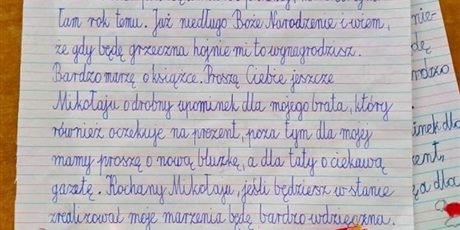 łam rok temu. Już niedługo Boże Narodzenie i wiem,
że gdy będę grzeczna hojnie mi to wynagrodzisz.
Bardzo marzę o książce. Proszę Ciebie jeszcze
Mikołaju o drobny upominek dla mojego brata, który
również oczekuje na prezent, poza tym dla mojej
mamy proszę o nową bluzkę, a dla taty o ciekawą
gazetę. Kochany Mikołaju, jeśli będziesz w stanie
zrealizować moje marzenia będę bardzo wdzięczna.
nie-
dę
inek dla
ent,
a dla